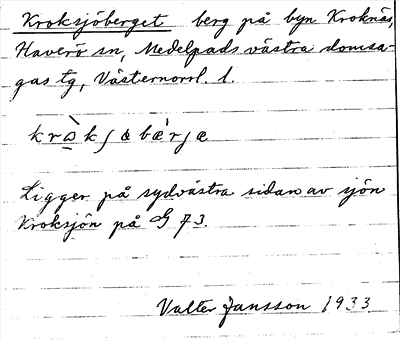 Kroksjöberget berg på byn Kroknäs,
Haverö sn, Medelpads västra domsa-
gas tg, Västernorrl. l.
Ligger på sydvästra sidan av sjön
Kroksjön på G 73.
Valter Jansson 1933.